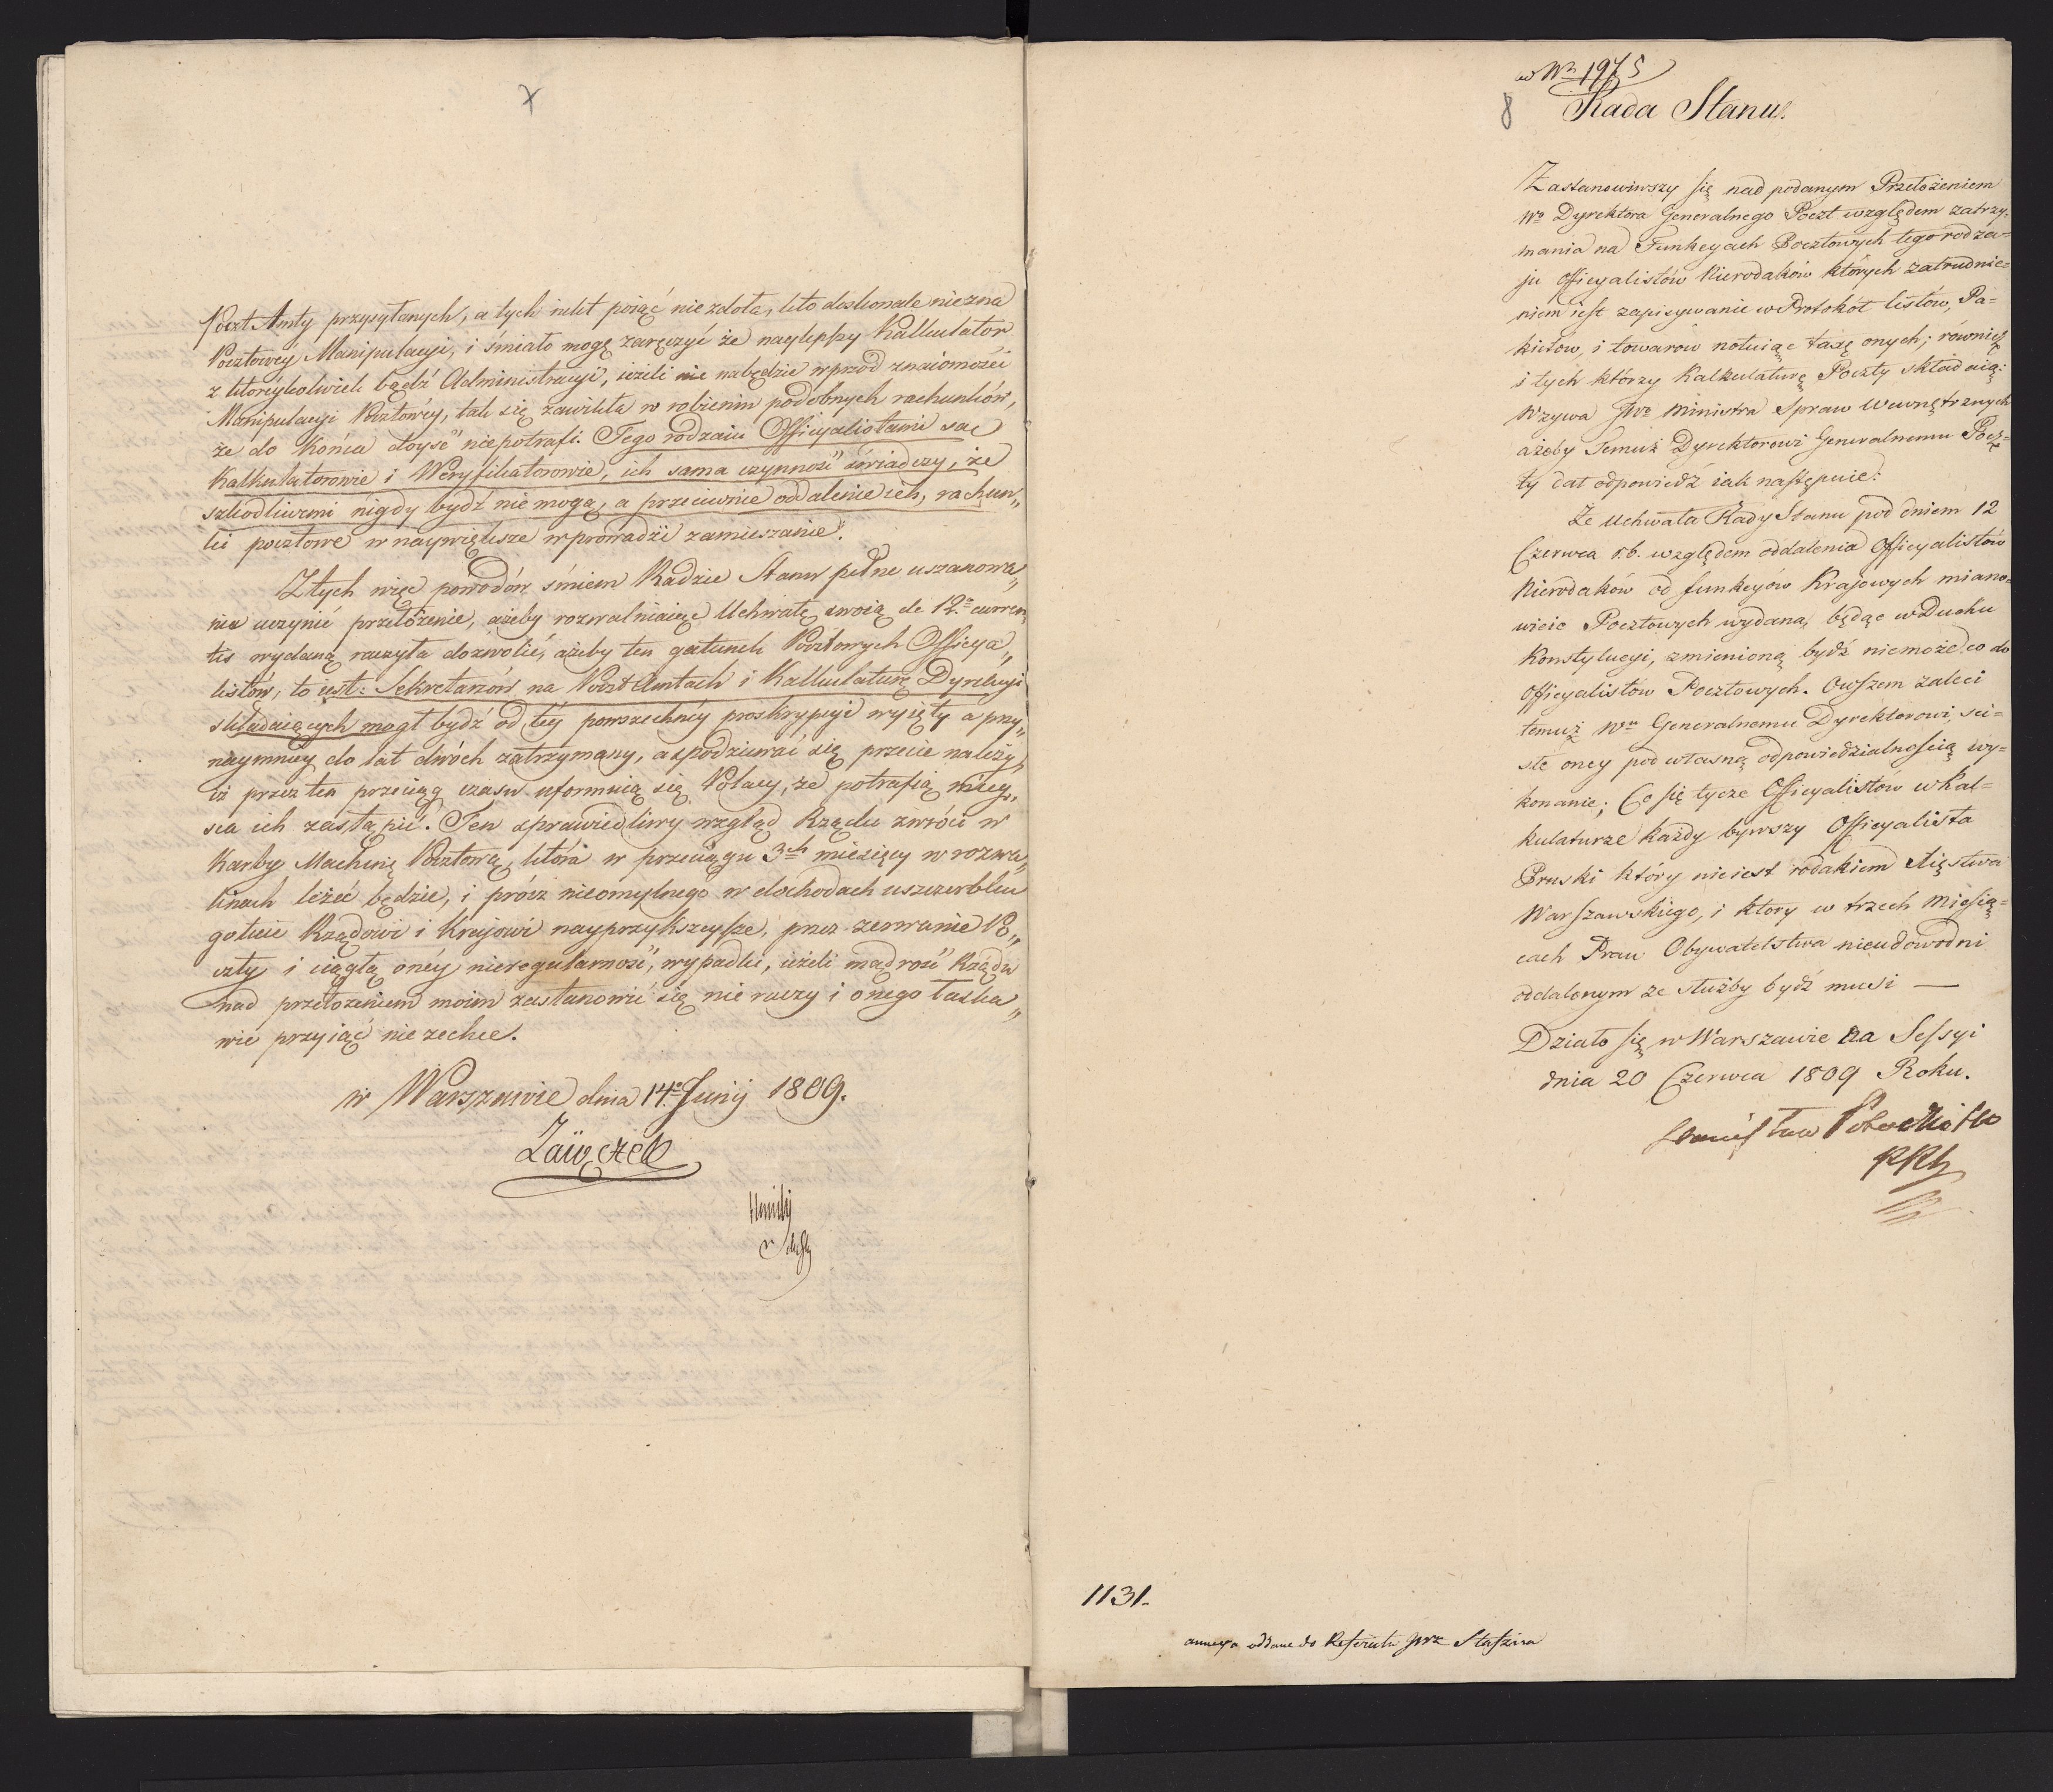 Poczt Amty przysyłanych, a tych nikt poiąć nie zdoła, kto doskonale nie zna
Pocztowéy Manipulacyi, i śmiało mogę zaręczyć że naylepszy Kalkulator
z któréykolwiek bądź Administracyi, ieżeli nie nabędzie wprzód znaiomości
Manipulacyi Pocztowéy, tak się zawikła w robieniu podobnych rachunków,
że do końca doyść niepotrafi. Tego rodzaiu Officyalistami są
Kalkulatorowie i Weryfikatorowie, ich sama czynność świadczy, że
szkodliwemi nigdy bydź nie mogą, a przeciwnie oddalenie ich, rachun„
ki pocztowe w naywiększe wprowadzi zamieszanie.
Z tych więc powodów śmiem Radzie Stanu pełne uszanowa„
nia uczynić przełożenie, ażeby rozwalniaiąc Uchwałę swoią de 12º curren„
tis wydaną raczyła dozwolić, ażeby ten gatunek Pocztowych Officya„
listów, to iest: Sekretarzów na Poczt Amtach i Kalkulaturę Dyrekcyi
składaiących mogł bydź od téy powszechnéy proskrypcyi wyięty a przy„
naymniey do lat dwóch zatrzymany, a spodziewać się przecie należy,
iż przez ten przeciąg czasu uformuią się Polacy, że potrafią miey„
sca ich zastąpić. Ten sprawiedliwy wzgląd Rządu zwróci w
Karby Machinę Pocztową, która w przeciągu 3ch miesięcy w rozwa„
linach leżeć będzie, i prócz nieomylnego w dochodach uszczerbku
gotuie Rządowi i Krajowi nayprzykrzeysze, przez zerwanie Po„
czty i ciągłą onéy nieregularność, wypadki, ieżeli mądrość Rządu
nad przełożeniem moim zastanowić się nie raczy i onego łaska„
wie przyiąć nie zechce.
w Warszawie dnia 14º Junij 1809.
Zaiączek
ad Nr 1975
8
Rada Stanu.
Zastanowiwszy się nad podanym Przełożeniem
Wo Dyrektora Generalnego Poczt względem zatrzy-
mania na Funkcyach Pocztowych tego rodza=
ju Officyalistów Nierodaków których zatrudnie=
niem iest zapisywanie w Protokół listów, Pa=
kietow, i towarów notuiąc taxę onych; równie
i tych którzy Kalkulaturę Poczty składaią:
Wzywa JWo Ministra Spraw Wewnętrznych
ażeby Temuż Dyrektorowi Generalnemu Pocz=
ty dał odpowiedź iak następuie:
Że Uchwała Rady Stanu pod dniem 12
Czerwca r.b. względem oddalenia Officyalistów
Nierodaków od funkcyów Krajowych miano=
wicie Pocztowych wydana, będąc w Duchu
Konstytucyi, zmienioną bydź niemoże co do
Officyalistów Pocztowych. Owszem zaleci
temuż Wu Generalnemu Dyrektorowi, sci=
słe oney pod własną odpowiedzialnością wy=
konanie; Co się tycze Officyalistów w Kal=
kulaturze każdy bywszy Officyalista
Pruski który nieiest rodakiem Xięstwa
Warszawskiego, i ktory w trzech Miesią=
cach Praw Obywatelstwa nieudowodni
oddalonym ze służby bydź musi —
Działo się w Warszawie na Sessyi
dnia 20 Czerwca 1809 Roku.
Stanisław Potocki
1131.
annexa oddane do Referatu JWX Staszica